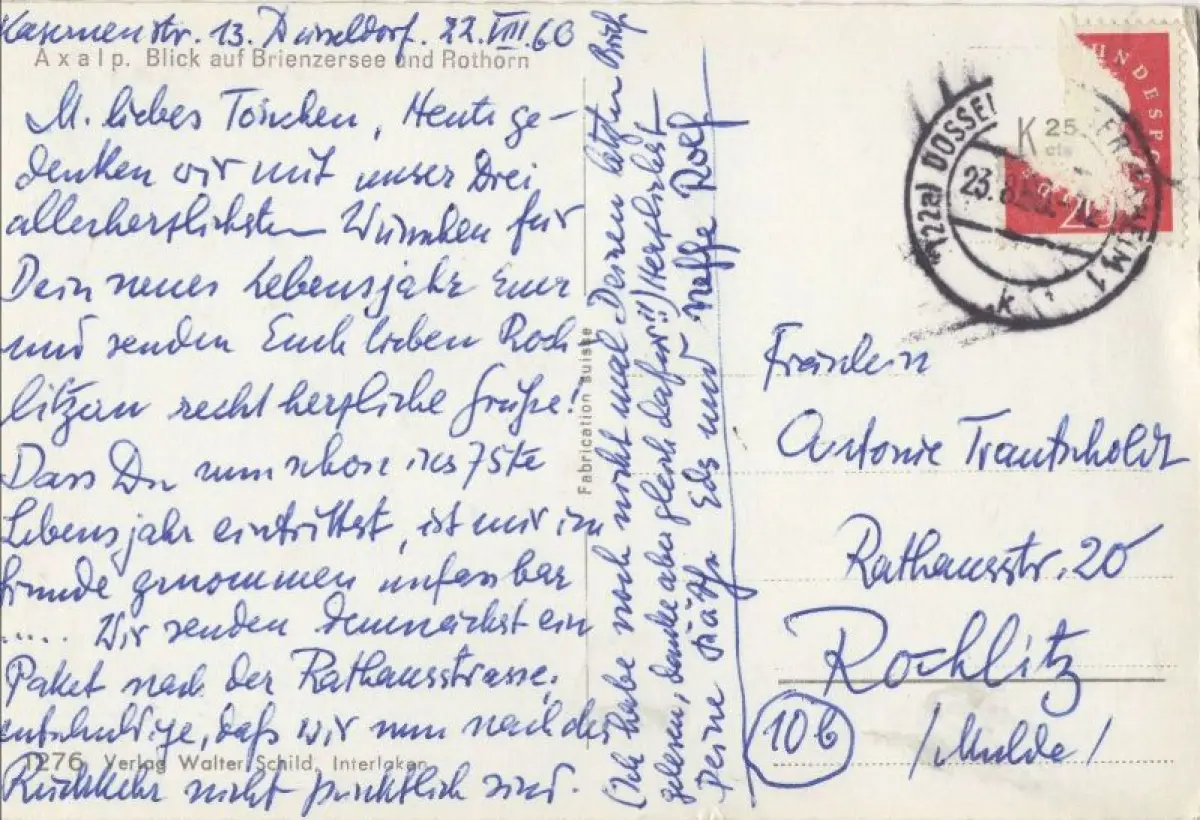 Kasernenstr. 13. Düsseldorf. 22. VIII. 60
Axalp. Blick auf Brienzersee und Rothorn
M. liebes Tönchen, Heute ge-
denken wir mit unser Drei
allerherzlichsten Wünschen für
Dein neues Lebensjahr Euer
und senden Euch lieben Roch
litzern recht herzliche Grüße!
Dass Du nun schon ins 75ste
Lebensjahr eintrittest, ist mir im
Grunde genommen unfassbar
..... Wir senden demnächst ein
Paket nach der Rathausstrasse,
entschuldige, daß wir nun nach der
Rückkehr nicht pünktlich sind.
1276 Verlag Walter Schild, Interlaken
Fabrication suisse
(Ich habe noch nicht mal Deinen letzten Brief
gelesen, danke aber gleich dafür!!) Herzlichst
Deine Käthe Ede und Neffe Rolf
K 25
cts
NDESPO
(22a) DÜSSEL
23.8.
HEIM 1
k
Fräulein
Antonie Trautscholdt
Rathausstr. 20
Rochlitz
10b
/Mulde/